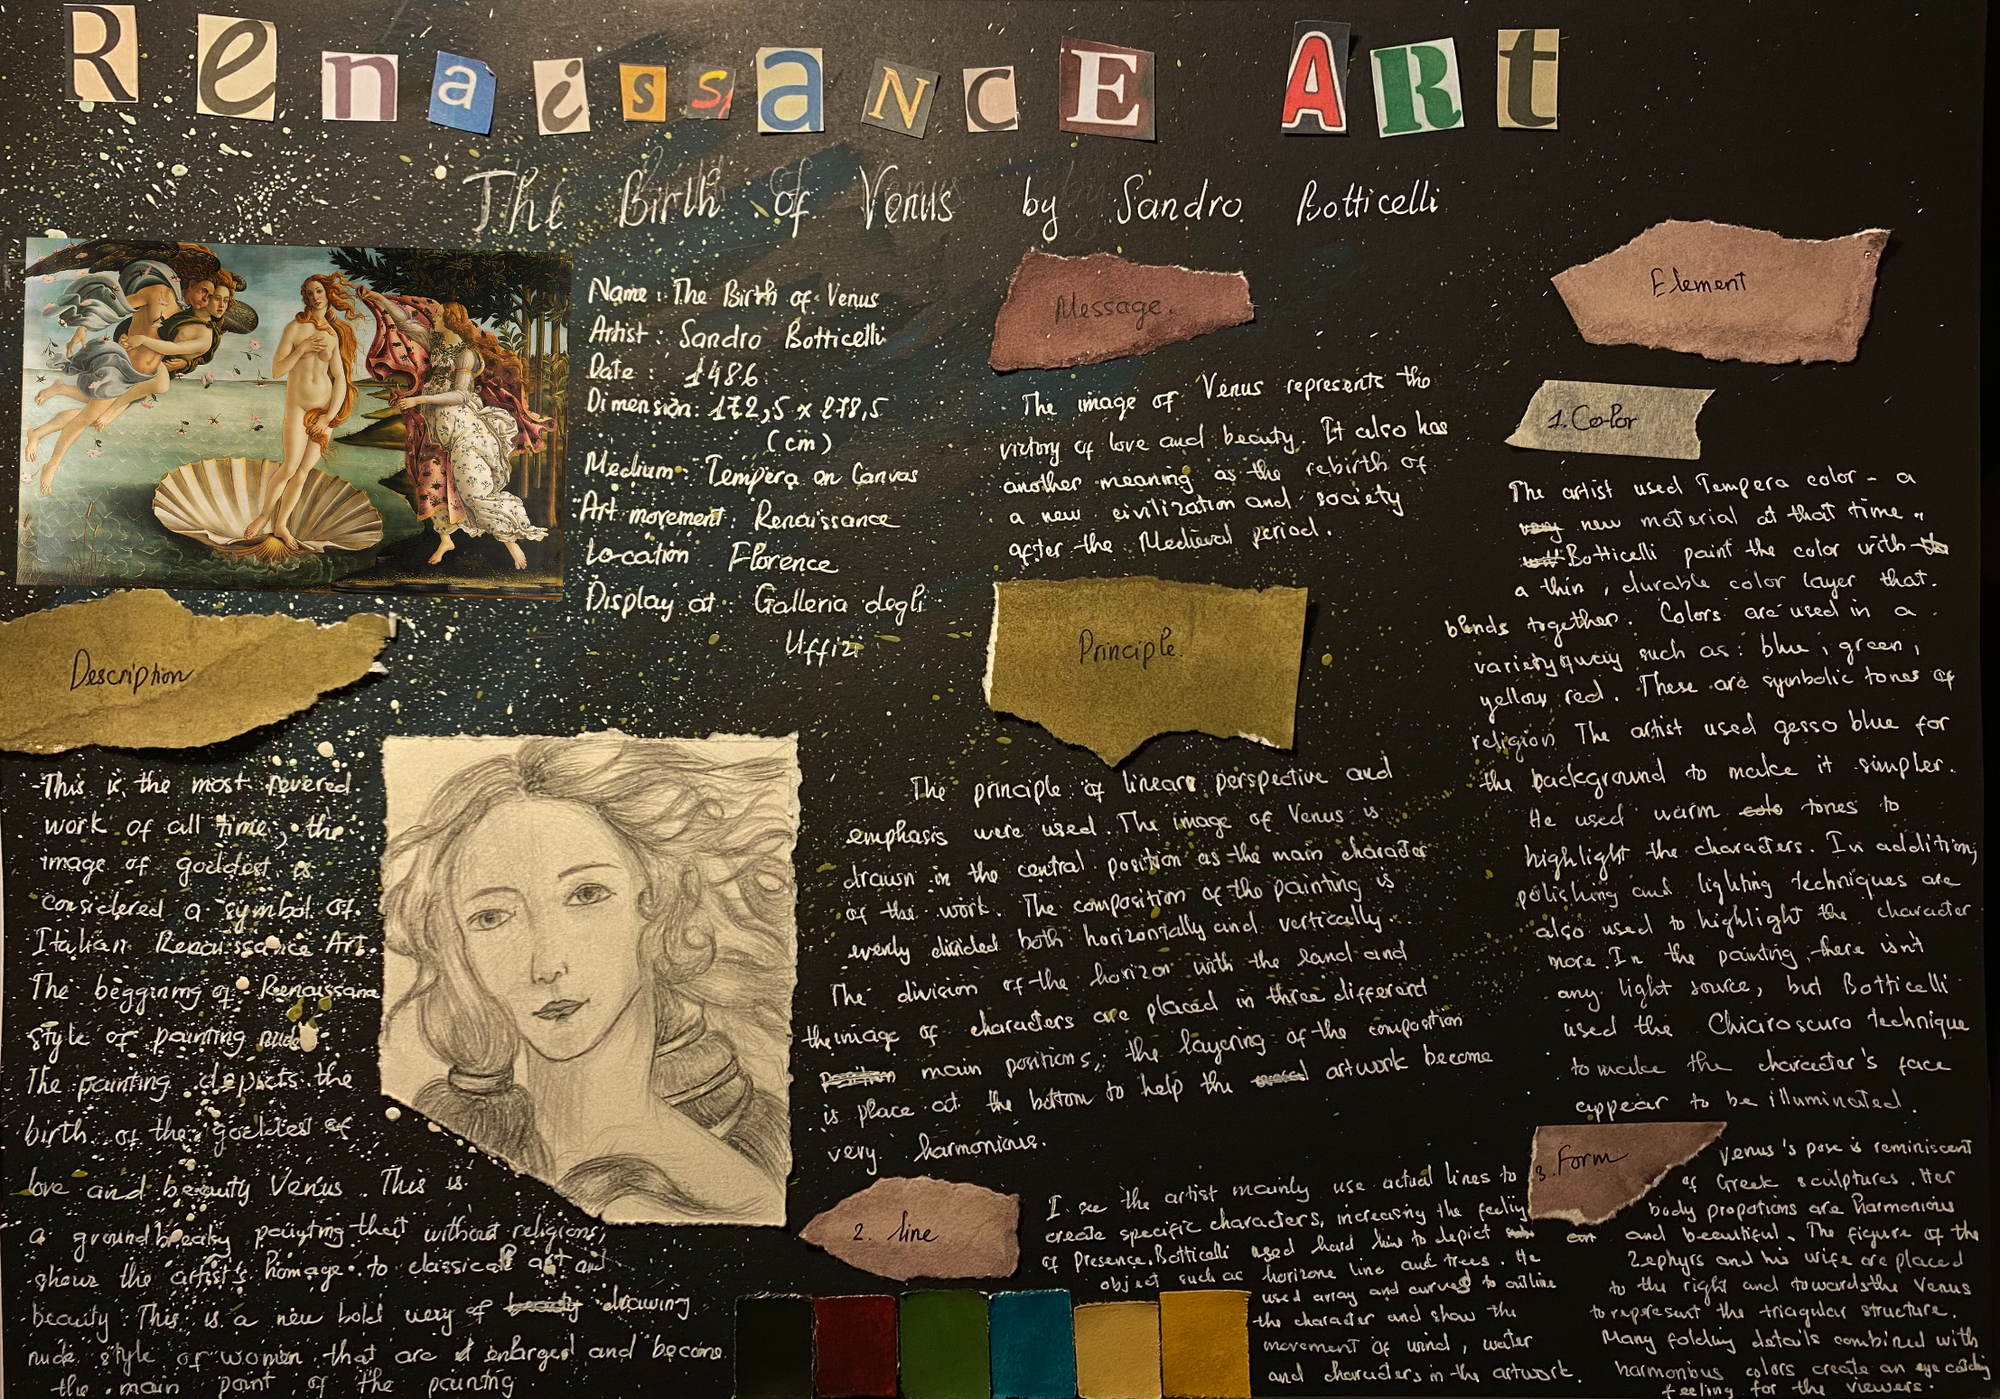 Renaissance Art
The Birth of Venus by Sandro Botticelli
Name: The Birth of Venus
Artist: Sandro Botticelli
Date: 1486
Dimension: 172,5 x 278,5
(cm)
Medium: Tempera on Canvas
Art movement: Renaissance
Location Florence
Display at: Galleria degli
Uffizi
Description
This is the most revered
work of all time, the
image of goddest is
considered a symbol of
Italian Renaissance Art.
The beggining of Renaissane
style of painting nude
The painting depicts the
birth of the goddest of
love and beauty Venus. This is
a groundbreaky painting that without religions,
shows the artist's homage to classical art and
beauty. This is a new bold very of drawing
nude style of women that are enlarged and become
the main point of the painting
Message.
The image of Venus represents the
victory of love and beauty. It also has
another meaning as the rebirth of
a new civilization and society
after the Medieval period.
Principle
The principle of linear perspective and
emphasis were used. The image of Venus is
drawn in the central position as the main character
of the work. The composition of the painting is
evenly divided both horizontally and vertically.
The division of the horizon with the land and
the image of characters are placed in three different
main positions, the layering of the composition
is place at the bottom to help the artwork become
very harmonious.
Element
1. Color
The artist used Tempera color - a
new material at that time.
Botticelli paint the color with
a thin, durable color layer that
blends together. Colors are used in a
variety such as: blue, green,
yellow, red. These are symbolic tones of
religion. The artist used gesso blue for
the background to make it simpler.
He used warm tones to
highlight the characters. In addition,
polishing and lighting techniques are
also used to highlight the character
more. In the painting, there isn't
any light source, but Botticelli
used the Chiaroscuro technique
to make the character's face
appear to be illuminated.
2. line
I see the artist mainly use actual lines to
create specific characters, increasing the feeling
of Presence. Botticelli used hard line to depict
object such as horizone line and trees. He
used array and curves to outline
the character and show the
movement of wind, water
and characters in the artwork.
3. Form
Venus's pose is reminiscent
of Greek sculptures. Her
body propotions are harmonious
and beautiful. The figure of the
Zephyrs and his wife are placed
to the right and towards the Venus
to represent the triagular structure.
Many folding details combined with
harmonious colors create an eye catching
feeling for the viewers.